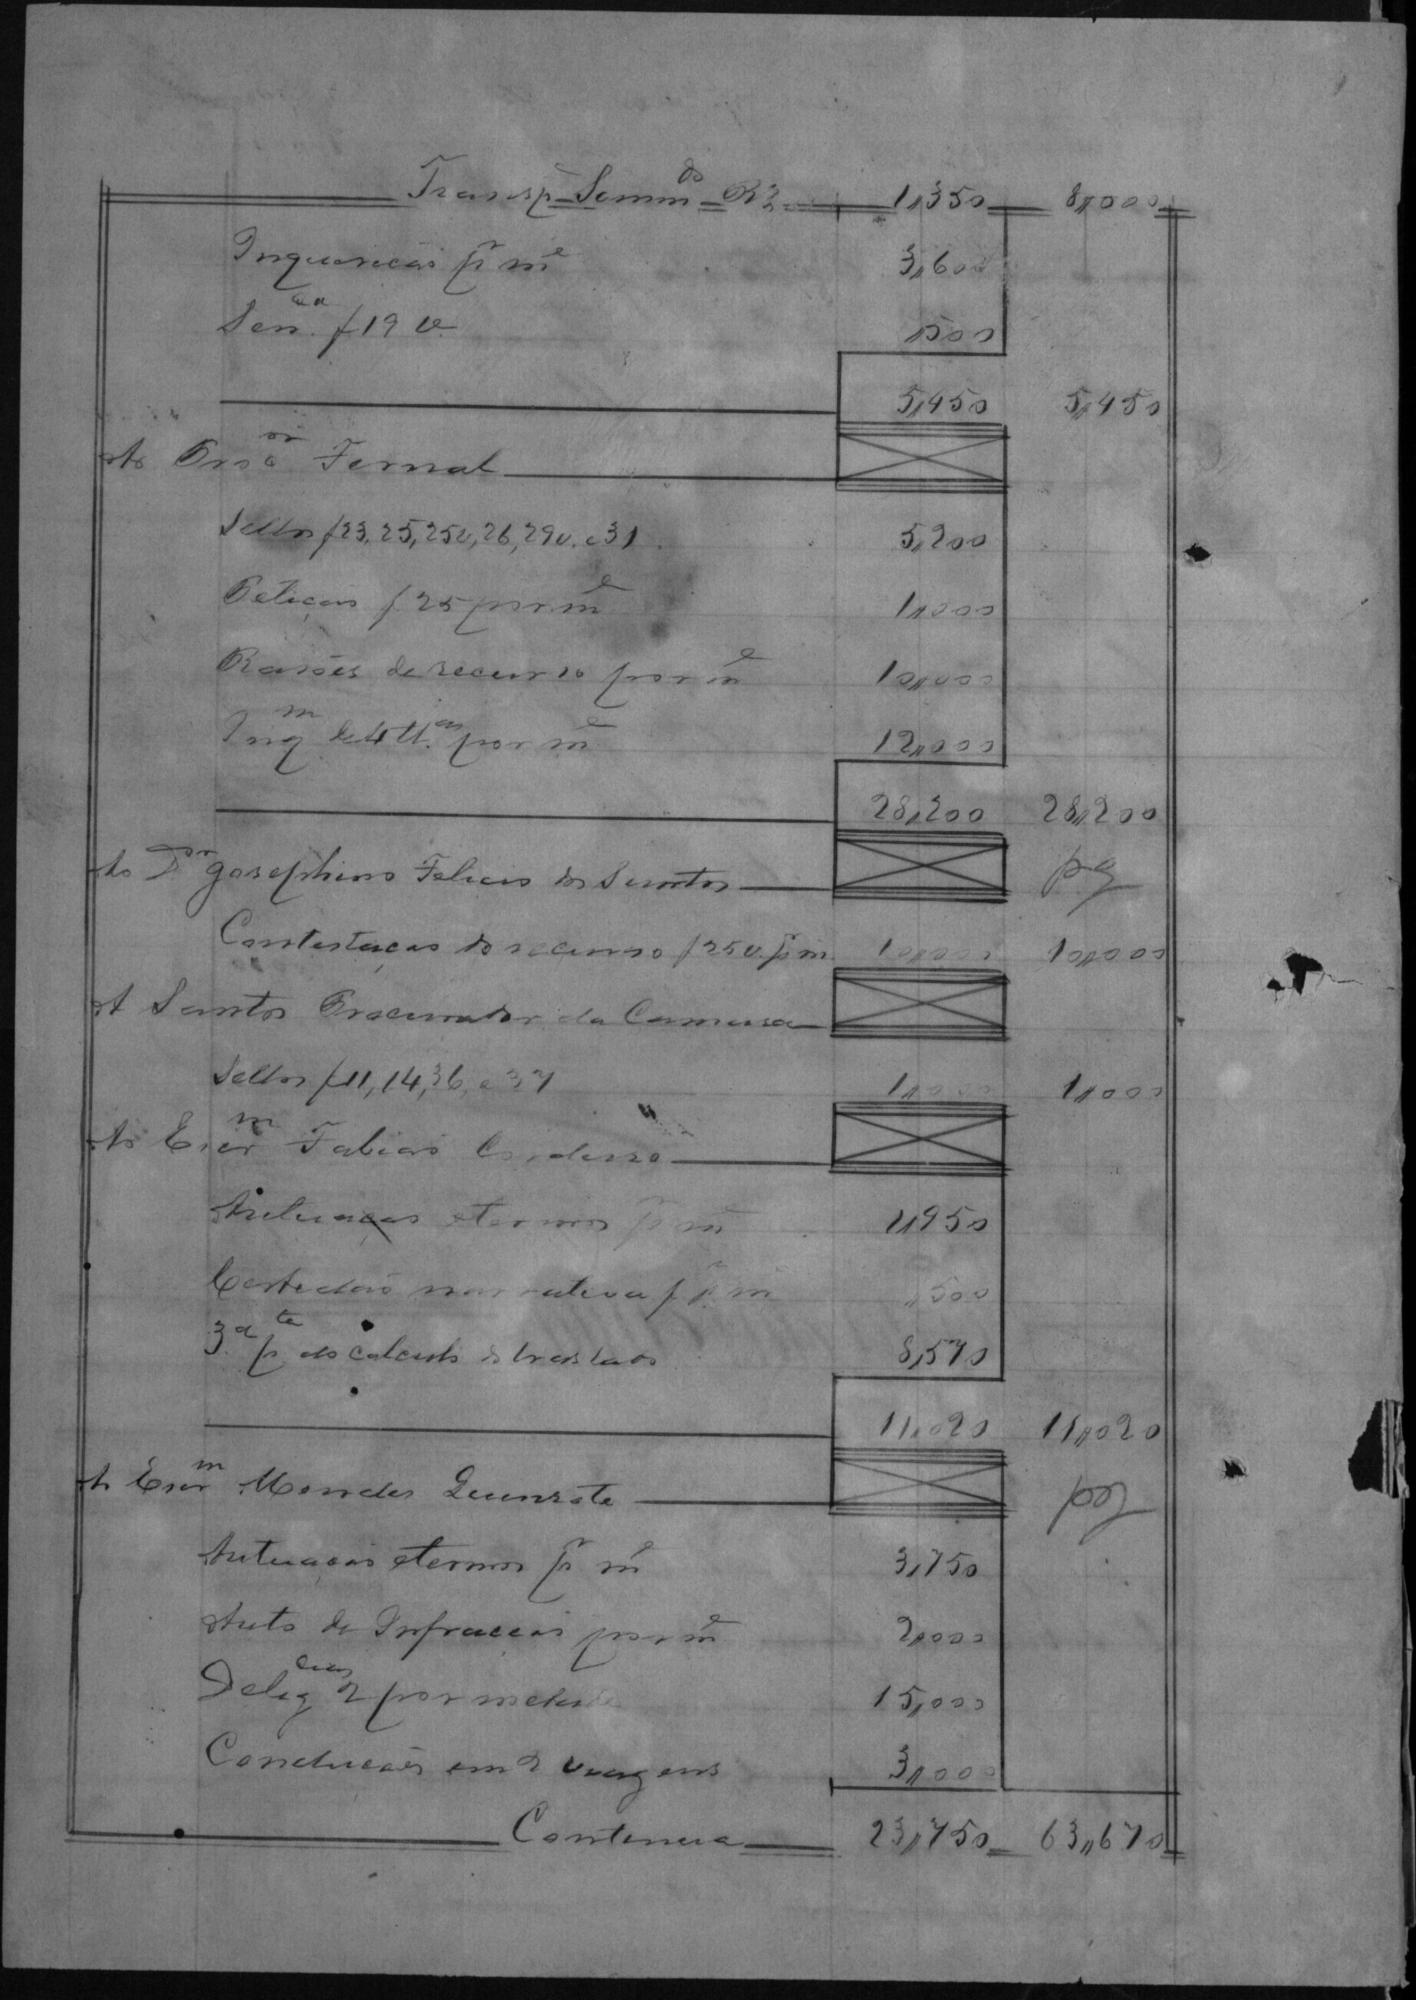 Transp. Somm^do R^s 1,,350 8,,000
Inquiricão p^r m^e 3,,600
Sen.^ça f 19 v. ,,500
5,,450 5,,450
Ao Pro^or Fernal
Sellos f 23, 25, 25v, 26, 29v. e 31. 5,,200
Peticão f 25 por m^e 1,,000
Rasões de recurso por m^e 10,,000
Inq^m de 4 tt.^as por m^e 12,,000
28,,200 28,,200
Ao D^or Josephino Felicio dos Santos pg
Contestação do recurso f 25 v. p^r m 10,,000 10,,000
A Santos Procurador da Camara
Sellos f 11, 14, 36, e 37 1,,000 1,,000
Ao Escr^m Fabião Cordeiro
Autuação e termos p^r m 1,,950
Certidão narrativa f p^r m ,,500
3.^a p^te do calculo do traslado 8,,570
11,,020 11,,020
Ao Escr^m Mendes pg
Autuacão e termos p^r m^e 3,,750
Auto de Infraccão por m^e 2,,000
Delig^cias 2 por metade 15,,000
Conducão em 2 viagens 3,,000
Continua 23,,750 63,,670